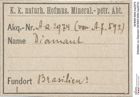 K. k. naturh. Hofmus. Mineral.-petr. Abt.
Akq.-Nr. A.a. 2974 (von A.f. 592)
Name Diamant
Fundort Brasilien?